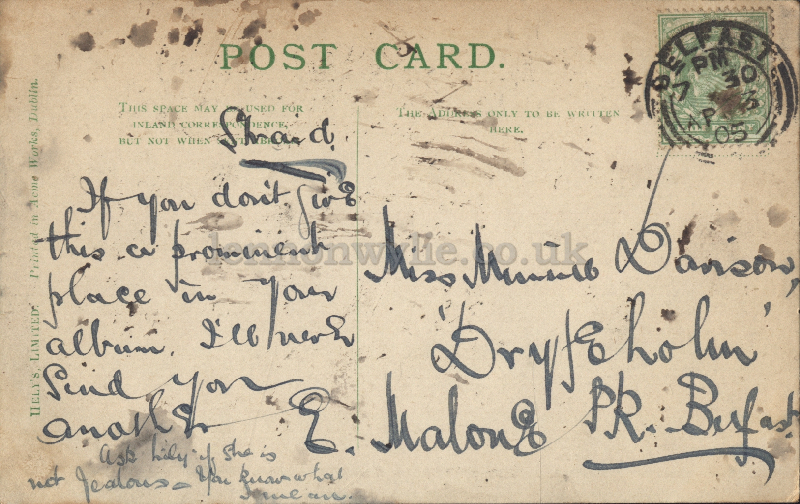 POST CARD.
THIS SPACE MAY BE USED FOR
INLAND CORRESPONDENCE,
BUT NOT WHEN
THE ADDRESS ONLY TO BE WRITTEN
HERE.
HELY'S, LIMITED. Printed in Acme Works, Dublin.
BELFAST
7 PM 30
AP
05
Straid.
If you don't give
this a prominent
place in your
album, I'll never
Send you
another
Ask Lily if she is
not Jealous - You know what
I mean.
Miss Minnie Davison,
'Dryfeholm'
E. Malone PK. Belfast
lennonwylie.co.uk